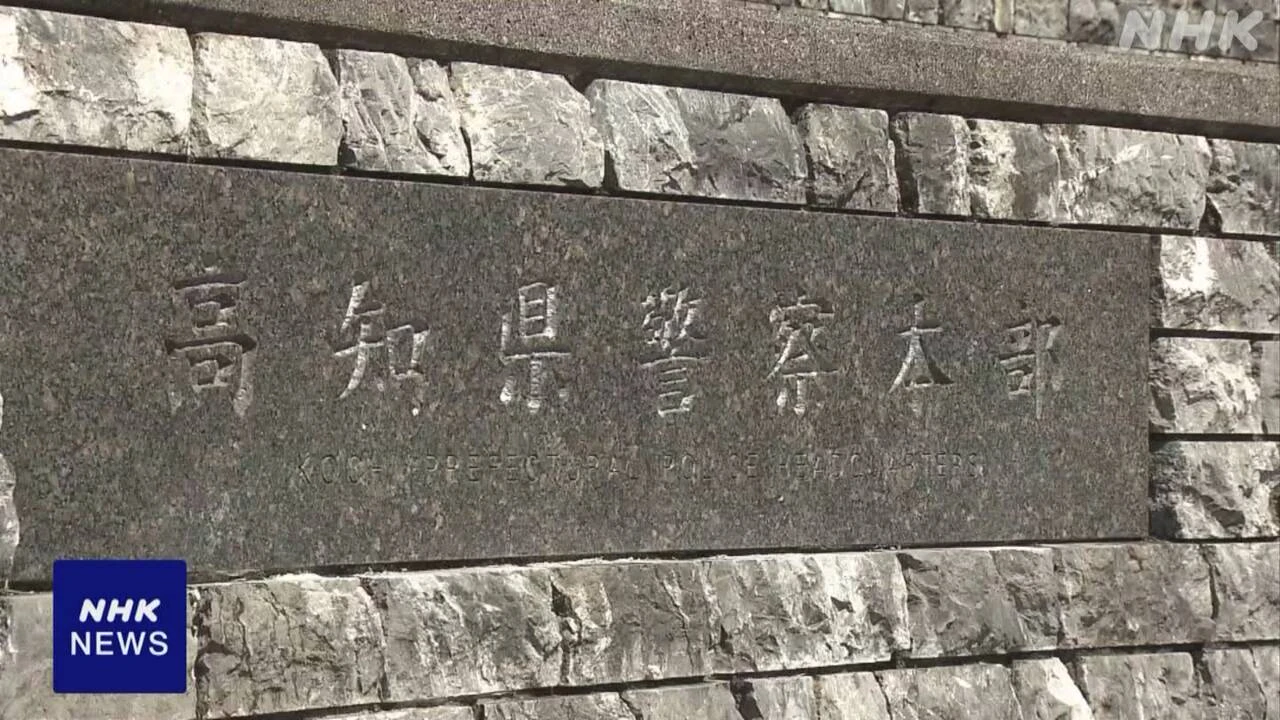 NHK
高知県警察本部
KOCHI PREFECTURAL POLICE HEADQUARTERS
NHK
NEWS